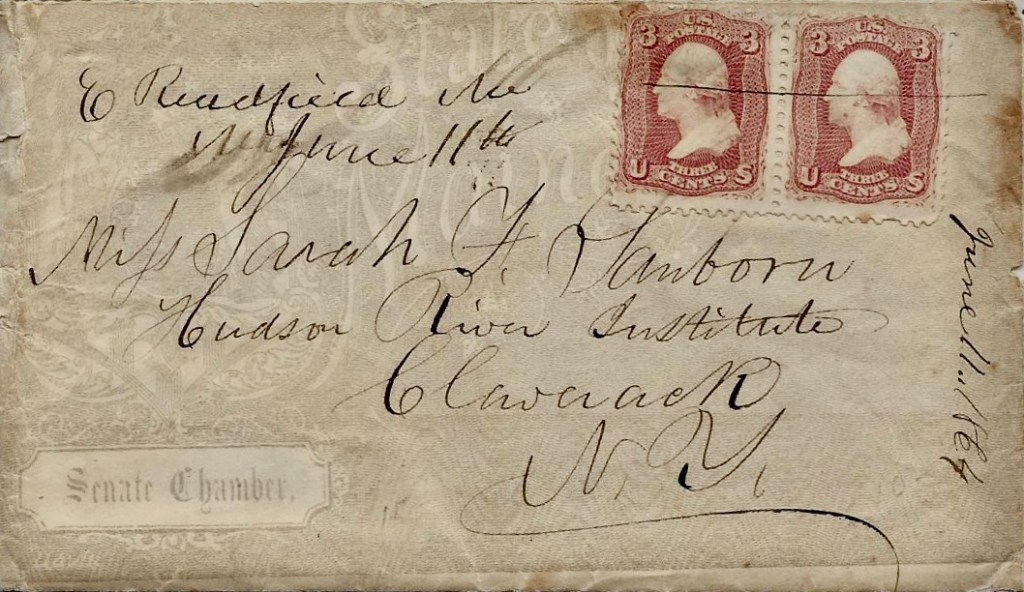 State of
Maine
E Readfield Me
June 11th
Miss Sarah F. Sanborn
Hudson River Institute
Claverack
N. Y.
June 11. 1864
Senate Chamber.
U.S.
POSTAGE
3 3
THREE
CENTS
U S
U.S.
POSTAGE
3 3
THREE
CENTS
U S